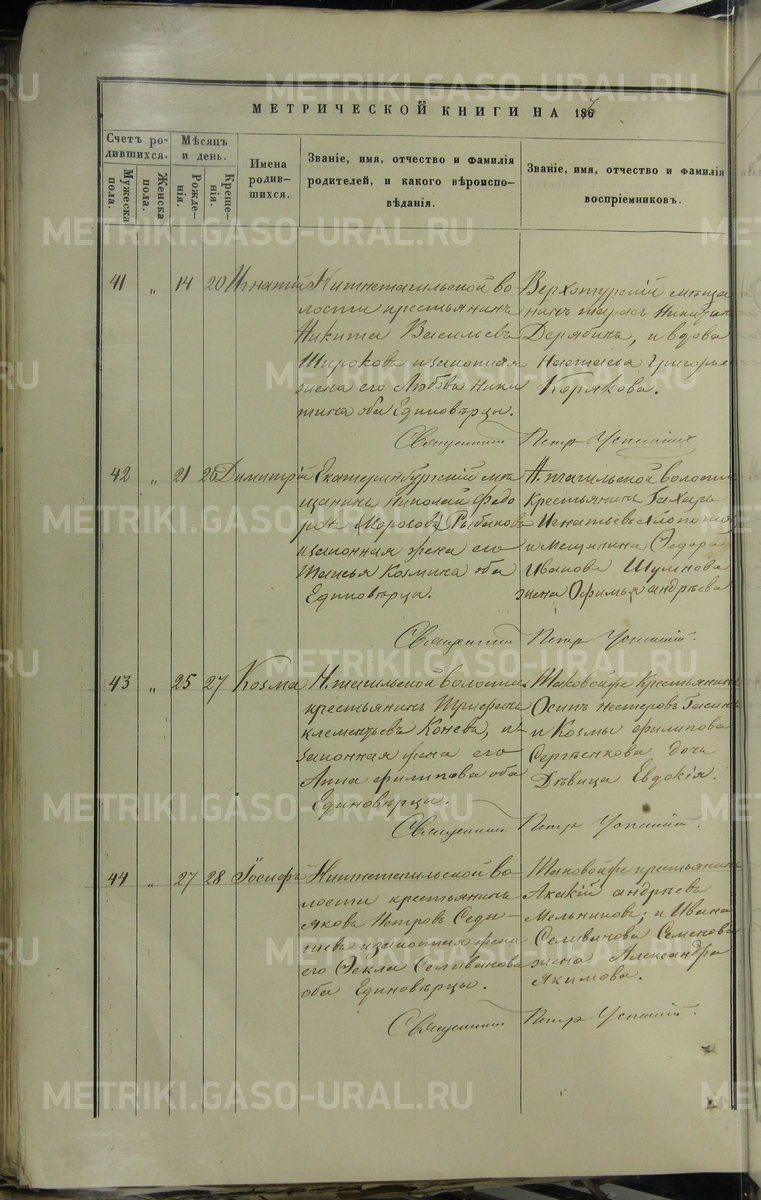 МЕТРИЧЕСКОЙ КНИГИ НА 1867
Счетъ ро-
дившихся.
Мужеска
пола.
Женска
пола.
Мѣсяцъ
и день.
Рожде-
нія.
Креще-
нія.
Имена
родив-
шихся.
Званіе, имя, отчество и фамилія
родителей, и какого вѣроиспо-
вѣданія.
Званіе, имя, отчество и фамилія
воспріемниковъ.
41 „ 14 20 Игнатій
Нижнетагильской во
лости крестьянинъ
Никита Васильевъ
Широковъ и законная
жена его Любовь Ники
тина оба Единовѣрцы.
Верхотурскій мѣща
нинъ Тарасъ Никитинъ
Дерябинъ, и вдова
Настасья Григорье
Корякова.
Священникъ Петръ Успенскій
42 „ 21 26 Димитрій
Екатеринбургскій мѣ
щанинъ Николай Федо
ровъ Морозовъ Рыбаковъ
и законная жена его
Таисья Козмина оба
Единовѣрцы.
Н. тагильской волости
крестьянинъ Захаръ
Игнатьевъ
и мещанина Федора
Иванова Шумкова
жена Офимья Андрѣева
Священникъ Петръ Успенскій.
43 „ 25 27 Козма
Н. тагильской волости
крестьянинъ
Клементьевъ Коневъ, и
законная жена его
Анна Филипова оба
Единовѣрцы.
Таковойже Крестьянинъ
Осипъ Нестеровъ
и Козмы Филипова
Сергѣенкова дочь
Дѣвица Евдокія.
Священникъ Петръ Успенскій.
44 „ 27 28 Іосифъ
Нижнетагильской во-
лости крестьянинъ
Яковъ Петровъ
и законная жена
его Фекла Селиванова
оба Единовѣрцы.
Таковойже крестьянинъ
Акакій Андрѣевъ
Мельниковъ, и Ивана
Селивачова Семенова
жена Александра
Якимова.
Священникъ Петръ Успенскій.
METRIKI.GASO-URAL.RU